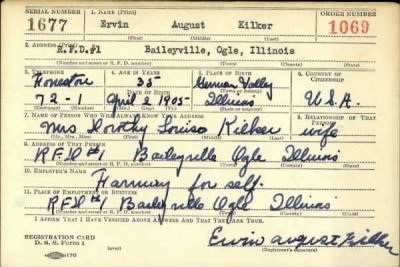 SERIAL NUMBER 1. NAME (Print) ORDER NUMBER
1677 Ervin August Kilker 1069
(First) (Middle) (Last)
2. ADDRESS (Print)
R.F.D.#1 Baileyville, Ogle, Illinois
(Number and street or R. F. D. number) (Town) (County) (State)
3. TELEPHONE 4. AGE IN YEARS 5. PLACE OF BIRTH 6. COUNTRY OF CITIZENSHIP
35 German Valley
DATE OF BIRTH
72 April 2 1905 Illinois U.S.A.
(Exchange) (Number) (Mo.) (Day) (Yr.) (State or country)
7. NAME OF PERSON WHO WILL ALWAYS KNOW YOUR ADDRESS 8. RELATIONSHIP OF THAT PERSON
Mrs Dorothy Louisa Kilker wife
(Mr., Mrs., Miss) (First) (Middle) (Last)
9. ADDRESS OF THAT PERSON
RFD#1 Baileyville Ogle Illinois
(Number and street or R. F. D. number) (Town) (County) (State)
10. EMPLOYER'S NAME
Farming for self.
11. PLACE OF EMPLOYMENT OR BUSINESS
RFD#1 Baileyville Ogle Illinois
(Number and street or R. F. D. number) (Town) (County) (State)
I AFFIRM THAT I HAVE VERIFIED ABOVE ANSWERS AND THAT THEY ARE TRUE.
REGISTRATION CARD
D. S. S. Form 1 Ervin August Kilker
(Registrant's signature)